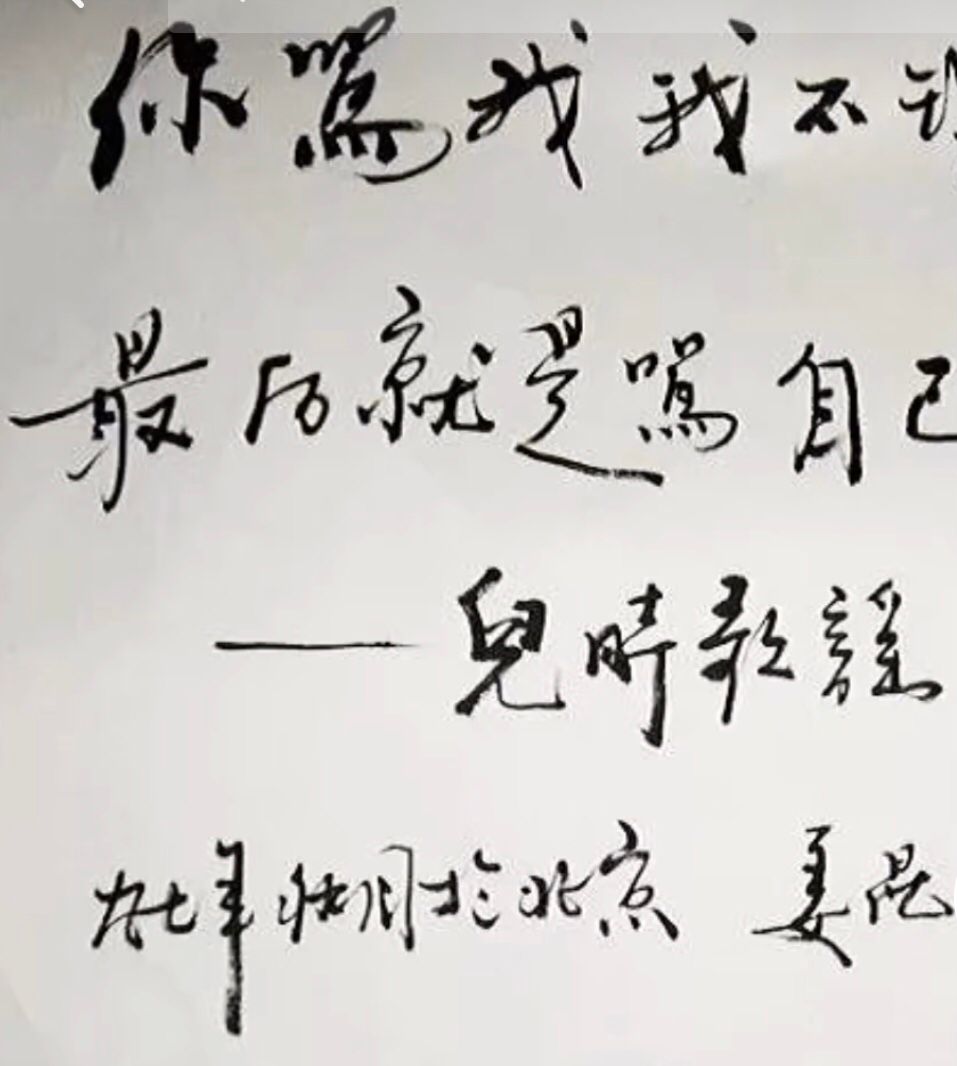 你罵我我不
最后就是罵自己
——兒時歌謠
九七年秋月於北京 姜昆